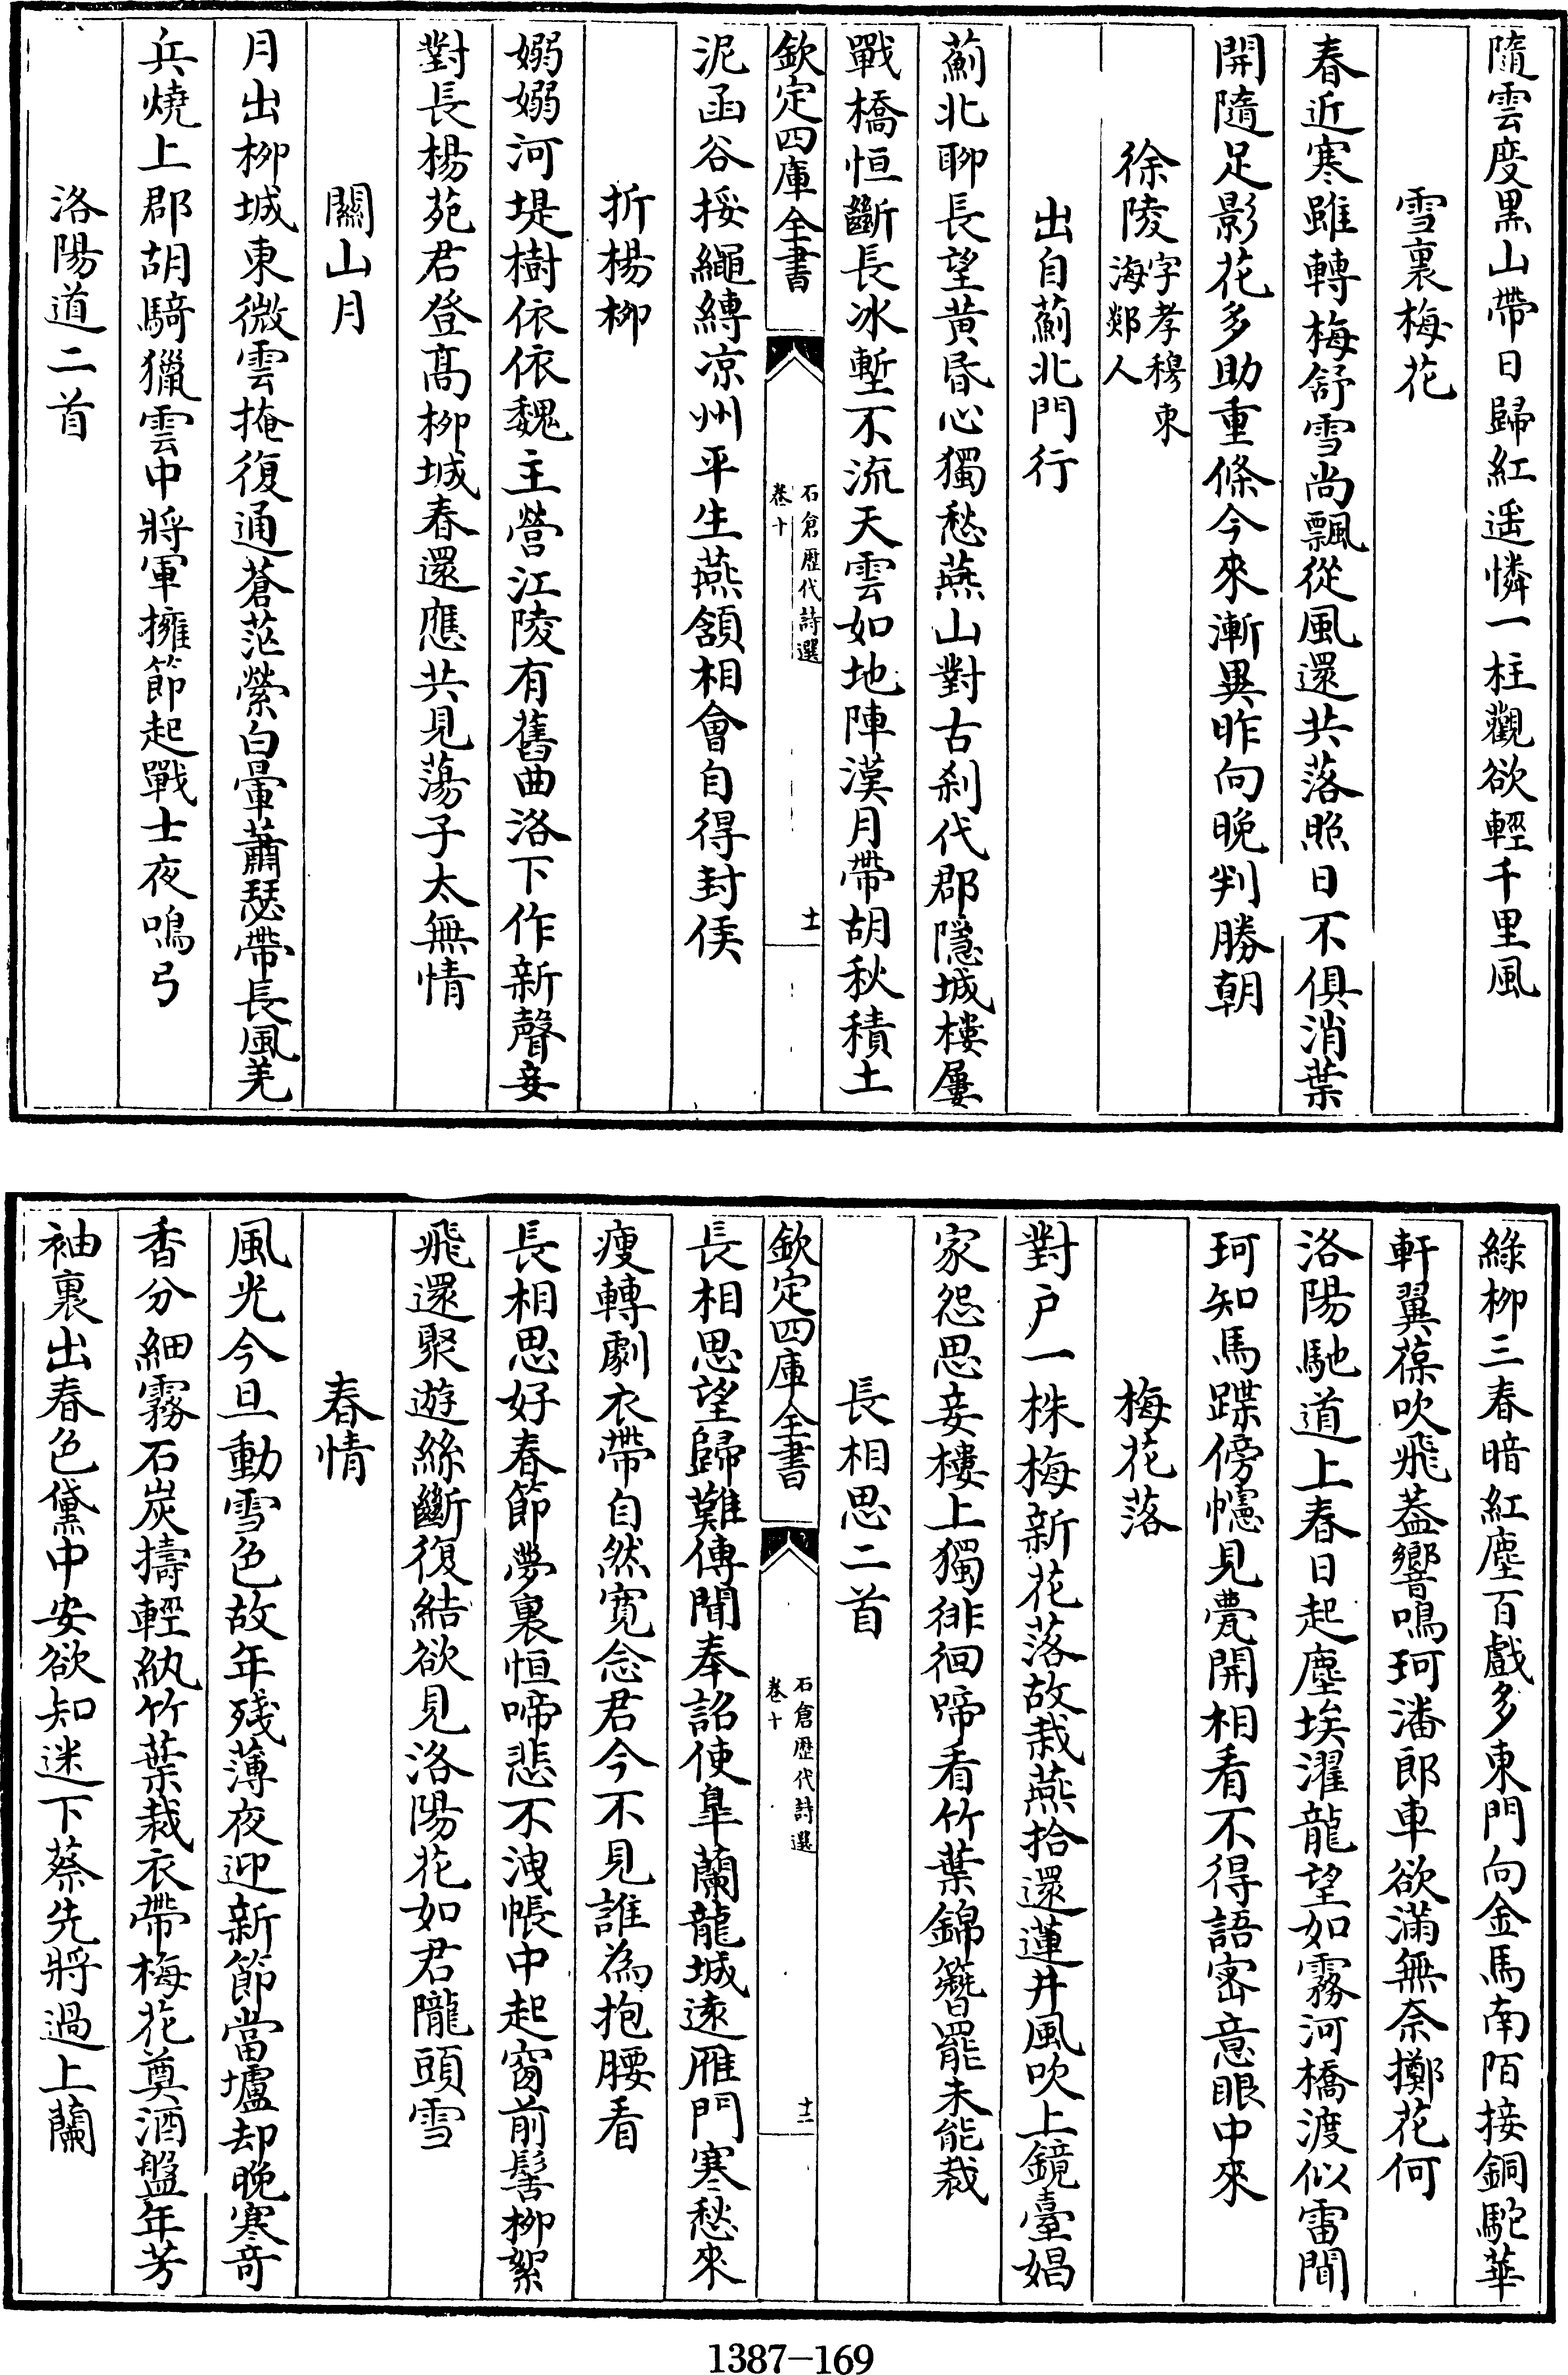 隨雲度黒山帶日歸紅遥憐一柱觀欲輕千里風
雪裏梅花
春近寒雖轉梅舒雪尚飄從風還共落照日不俱消葉
開隨足影花多助重條今來漸異昨向晚判勝朝
徐陵字孝穆東海郯人
出自薊北門行
薊北聊長望黄昏心獨愁燕山對古刹代郡隱城樓屢
戰橋恒斷長冰塹不流天雲如地陣漢月帶胡秋積土
欽定四庫全書
石倉歴代詩選
卷十
十一
泥函谷挼繩縳凉州平生燕頷相會自得封侯
折楊柳
嫋嫋河堤樹依依魏主營江陵有舊曲洛下作新聲妾
對長楊苑君登髙柳城春還應共見蕩子太無情
關山月
月出柳城東微雲掩復通蒼茫縈白暈蕭瑟帶長風羌
兵燒上郡胡騎獵雲中將軍擁節起戰士夜鳴弓
洛陽道二首
緑柳三春暗紅塵百戲多東門向金馬南陌接銅駝華
軒翼葆吹飛葢響鳴珂潘郎車欲滿無奈擲花何
洛陽馳道上春日起塵埃濯龍望如霧河橋渡似雷聞
珂知馬蹀傍幰見甍開相看不得語密意眼中來
梅花落
對户一株梅新花落故栽燕拾還蓮井風吹上鏡臺娼
家怨思妾樓上獨徘徊啼看竹葉錦簪罷未能裁
長相思二首
欽定四庫全書
石倉歴代詩選
卷十
十二
長相思望歸難傳聞奉詔使臯蘭龍城逺雁門寒愁來
瘦轉劇衣帶自然寛念君今不見誰為抱腰看
長相思好春節夢裏恒啼悲不洩帳中起窗前髻柳絮
飛還聚遊絲斷復結欲見洛陽花如君隴頭雪
春情
風光今旦動雪色故年殘薄夜迎新節當壚却晚寒竒
香分細霧石炭擣輕紈竹葉裁衣帶梅花奠酒盤年芳
袖裏出春色黛中安欲知迷下蔡先將過上蘭
1387-169